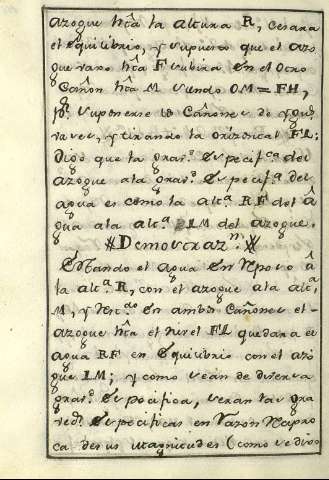 azogue hta la altura R, cesara
el Equilibrio, y supuesto que el azo
gue vaxo hta F subira en el otro
Cañon hta M siendo OM = FH,
pr. suponerse los Cañones de ygs.
vases, y tirando la orizontal FL;
Digo que la gravd. Especifca. del
azogue ala gravd. Especifa. del
agua es como la alta. RF del â
gua ala alta. LM del azogue.
Demostrazn.
Estando el agua en reposo â
la alta. R, con el azogue ala alta.
M, y en ambos Cañones el
azogue hta el nivel FL quedara el
agua RF en Equilibrio con el azo
gue LM; y como sean de diversa
gravd. Especifica, seran las gra
veds. Especificas en razon recipro
ca de sus magnitudes (como se dixo